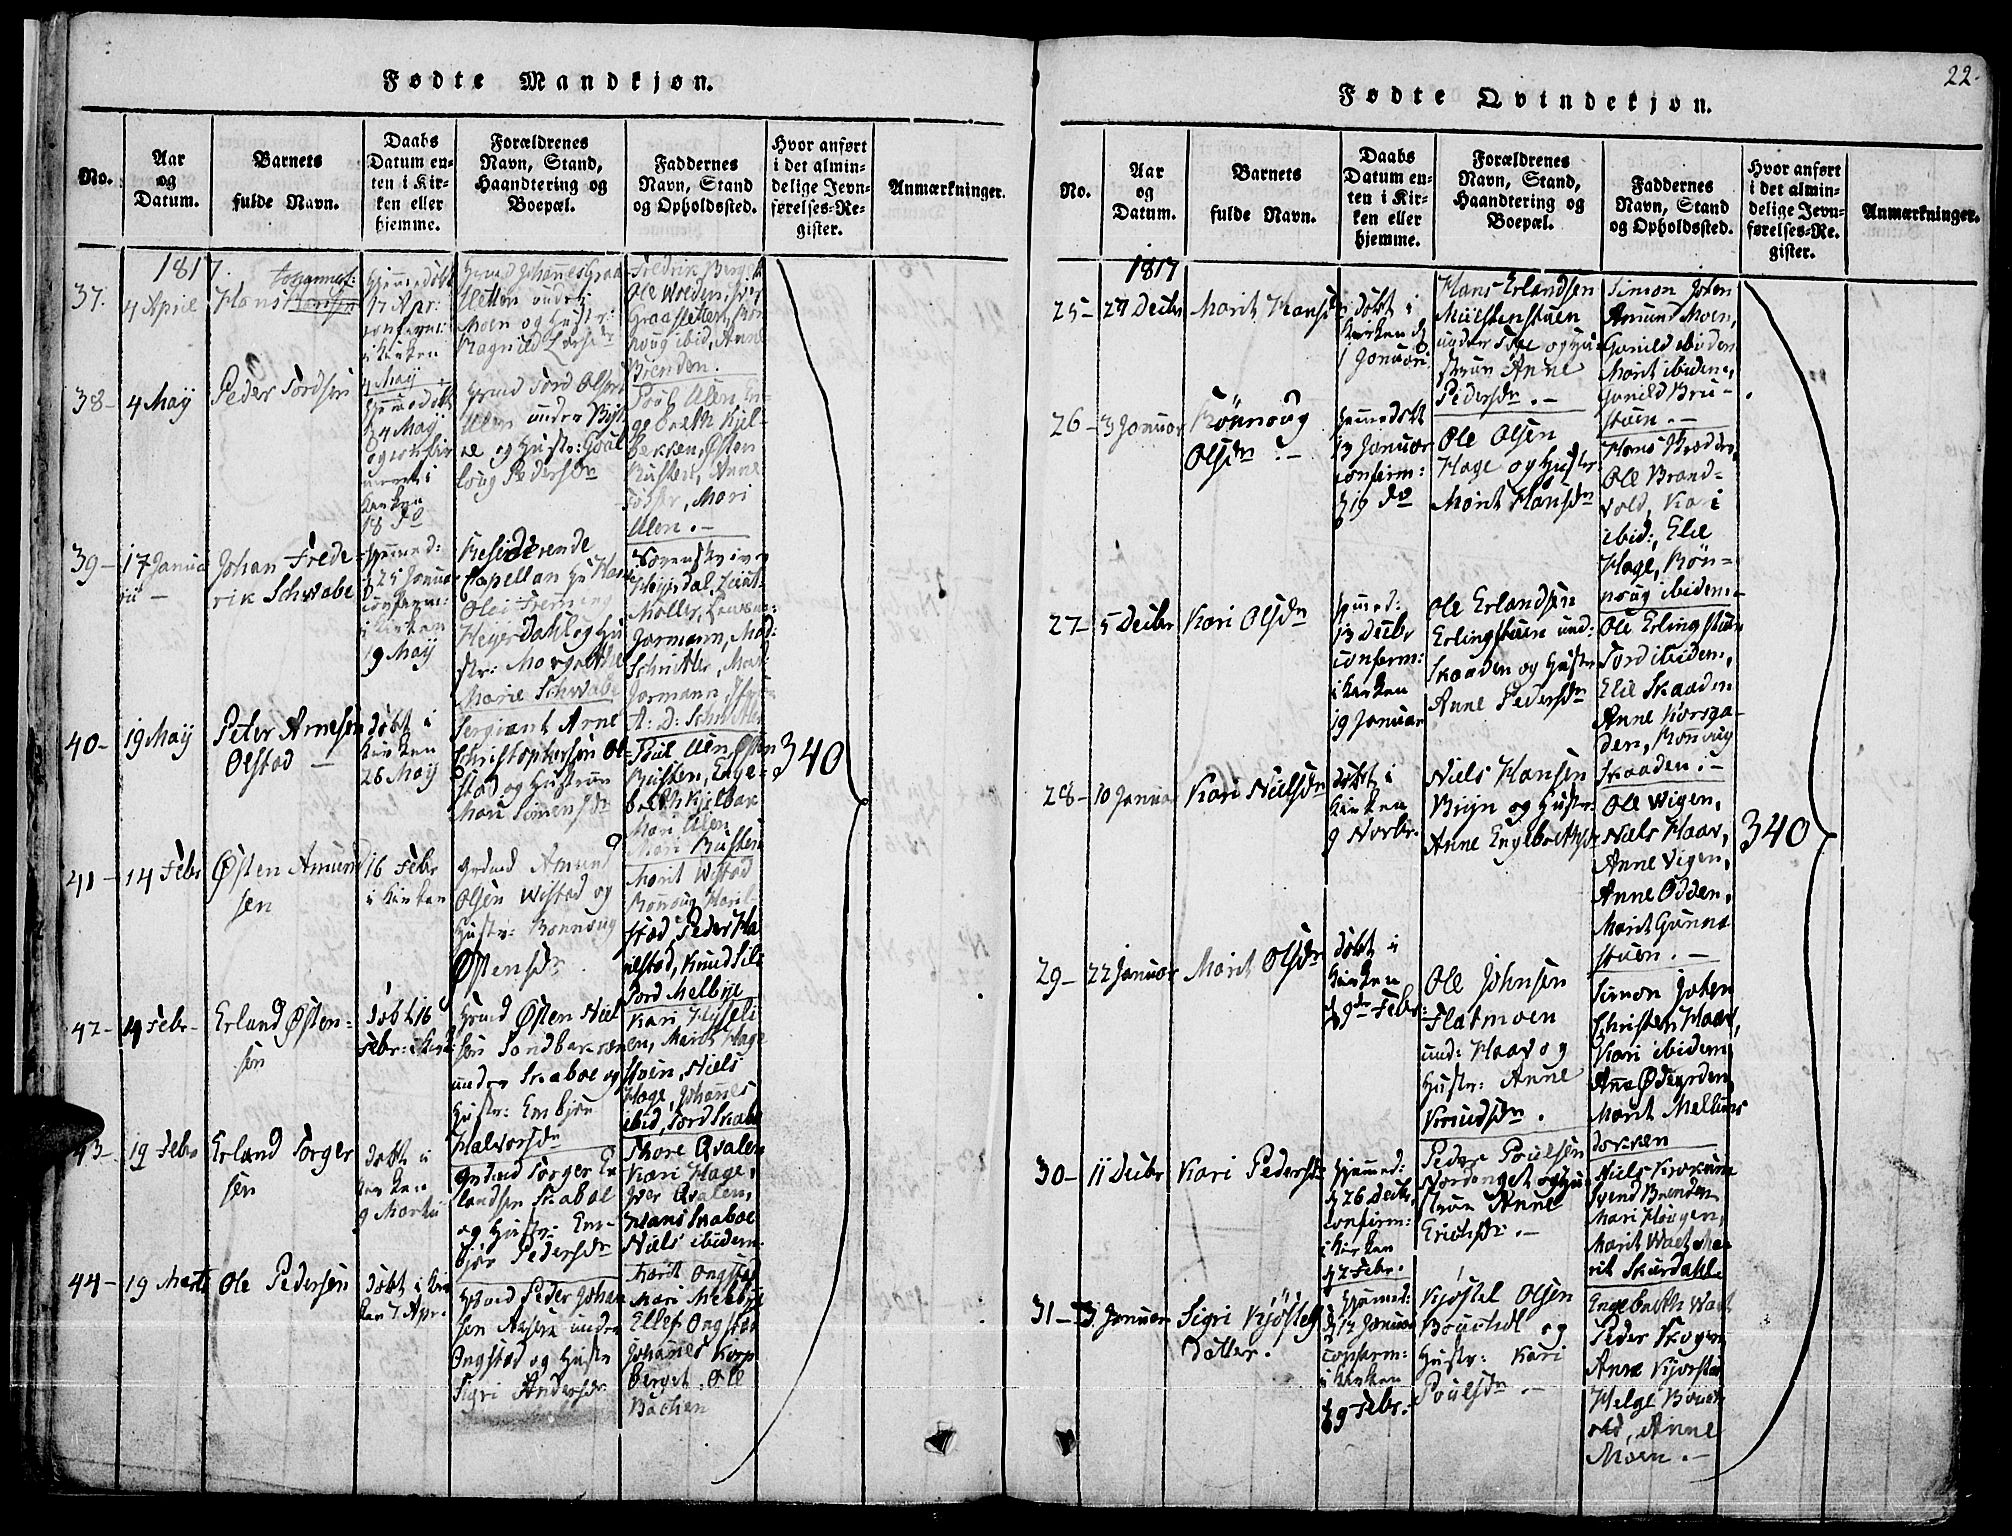 22.
Fødte Mandkjøn.
No.
Aar
og
Datum.
Barnets
fulde Navn.
Daabs
Datum en-
ten i Kir-
ken eller
hjemme.
Forældrenes
Navn, Stand,
Haandtering og
Boepæl.
Faddernes
Navn, Stand
og Opholdssted.
Hvor anført
i det almin-
delige Jevn-
førelses-Re-
gister.
Anmærkninger.
1817.
37.
4 April
Johannes:
Hans
hjemmedøbt
17 Apr:
i Kirken
4 Maij
Moen og Hustr:
Ragnild
Fredrik
Ole
ibid, Anne
Brenden.
38-
4 Maij
Peder Tordsen
hjemmedøbt
4 Maij
og confir
meret i
Kirken
18 do
Tord Olsen
Ulen under
og Hustr:
Pedersdr
Poul Ulen, En-
ge breth Kjel-
bekken, Østen
Busten, Anne
Mari
Ulen. -
39-
17 Janua
rii -
Johan Frede
rik Schwabe
hjemmed:
25 Januar
confirm:
i Kirken
19 Maij
Residerende
Capellan Hr Hans
Olei
Heyerdahl og Hu
str: Margrethe
Marie Schwabe
Sorenskriver
Heyerdal, Leut-
Møller,
Gormann, Mad:
Mad:
Gormann,
A: D:
40-
19 Maij
Peter Arnesen
Olstad -
Døbt i
Kirken
26 Maij
Sergiant Arne
Christophersen Ol-
stad og Hustrue
Mari Simensdr
Poul Ulen Østen
Busten, Enge-
breth Kjelbak
Mari Ulen
Mari Busten
340
41-
14 Febr
Østen Amund
sen
16 Febr
i Kirken
Amund
Olsen Wistad og
Hustr: Ronnoug
Østensdr.
Marit Wistad
Ronnoug Haril-
stad, Peder Ha
rilstad, Knud
Tord Melbye
42-
4 Febr-
Erland Østen-
sen
Døbt 16
Febr: i Kirk
Østen Niel
sen Sandbakken
under Skaboe og
Hustr: Embjør
Halvorsdr
Kari
en, Marit Hage
stuen, Niels
Hage, Johannes
ibid, Tord Skabo
43-
19 Febr
Erland Torger
sen
Døbt i
Kirken
9 Martii
Torger Er
landsen Skaboe
og Hustr: Em-
bjør Pedersdr
Thore Qvalen
Kari Hage,
Iver Qvalen,
Hans Skaboe
Niels ibidem.
44-
19 Marts
Ole Pedersen
Døbt i Kir
ken 7 Apr.
Peder Johan
sen under
Ongstad og Hustr
Sigri Andersdr
Marit Ongstad
Mari Melbye
Ellef Ongstad
Johannes Korp
berget, Ole
Bachen
Fødte Qvindekjøn.
No.
Aar
og
Datum.
Barnets
fulde Navn.
Daabs
Datum en-
ten i Kir-
ken eller
hjemme.
Forældrenes
Navn, Stand,
Haandtering og
Boepæl.
Faddernes
Navn, Stand
og Opholdssted.
Hvor anført
i det almin-
delige Jevn-
førelses-Re-
gister.
Anmærkninger.
1817
25-
29 Decbr
Marit Hansdr
Døbt i
Kirken d
1 Januari
Hans Erlandsen
under og Hu-
strue Anne
Pedersdr. -
Simon Joten
Amund Moen,
Gunild ibidem
Marit ibidem,
Gunild Bru-
stuen. -
26-
3 Januar
Rönnoug
Olsdr. -
hjemmedøbt
13 Januar
confirm:
19 do
Ole Olsen
Hage og Hustr
Marit Hansdr
Hans
Ole Brand-
vold, Kari
ibid:, Elie
Hage, Rön-
noug ibidem-
27-
5 Decbr
Kari Olsdr
hjemmed:
13 Decbr
confirm:
i Kirken
19 Januar
Ole Erlandsen
Erlingstuen und:
Skaaden og Hustr
Anne Pedersdr
Ole Erlingstuen
Tord ibidem,
Elie Skaaden
Anne Korsga-
den, Ronnoug
Skaaden. -
28-
10 Januar
Kari Nielsdr
Døbt i
Kirken
9 Novbr.
Niels Hansen
og Hustr:
Anne Engebrethsdr
Ole Wigen,
Niels Haav,
Anne Vigen,
Anne Odden,
Marit Gunna
stuen. -
340
29-
22 Januar
Marit Olsdr
Døbt i
Kirken
d 9de Febr:
Ole Johnsen
Flatmoen
und: Haav og
Hustr: Anne
Knudsdr.
Simon Joten
Christen Haav,
Kari ibidem
Anne Ødegarden
Marit Mellums
30-
11 Decbr
Kari Pedersdr
hjemmed:
d 26 Decbr
confirm:
i Kirken
d 2 Febr.
Peder Poulsen
Nordenget og Hu
strue Anne
Erichsdr. -
Niels
Svend Brenden
Mari Haugen,
Marit
rit Skurdahl
31-
3 Januar
Sigri Kjöstel
datter.
hjemmed:
d 12 Januar
confirm:
i Kirken
d 9 Febr.-
Kjøstel Olsen
og
Hustr: Kari
Poulsdr. -
Engebreth
Peder Skogen
Anne Kjorstad
Helge
old, Anne
Moen. -